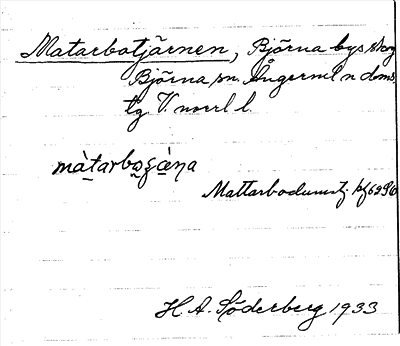 Matarbotjärnen, Björna bys skog
Björna sn. Ångerml n doms.
tg V. norrl l.
màtarboʂæ̀ṇa
Mattarbodumstj.
H. A. Söderberg 1933